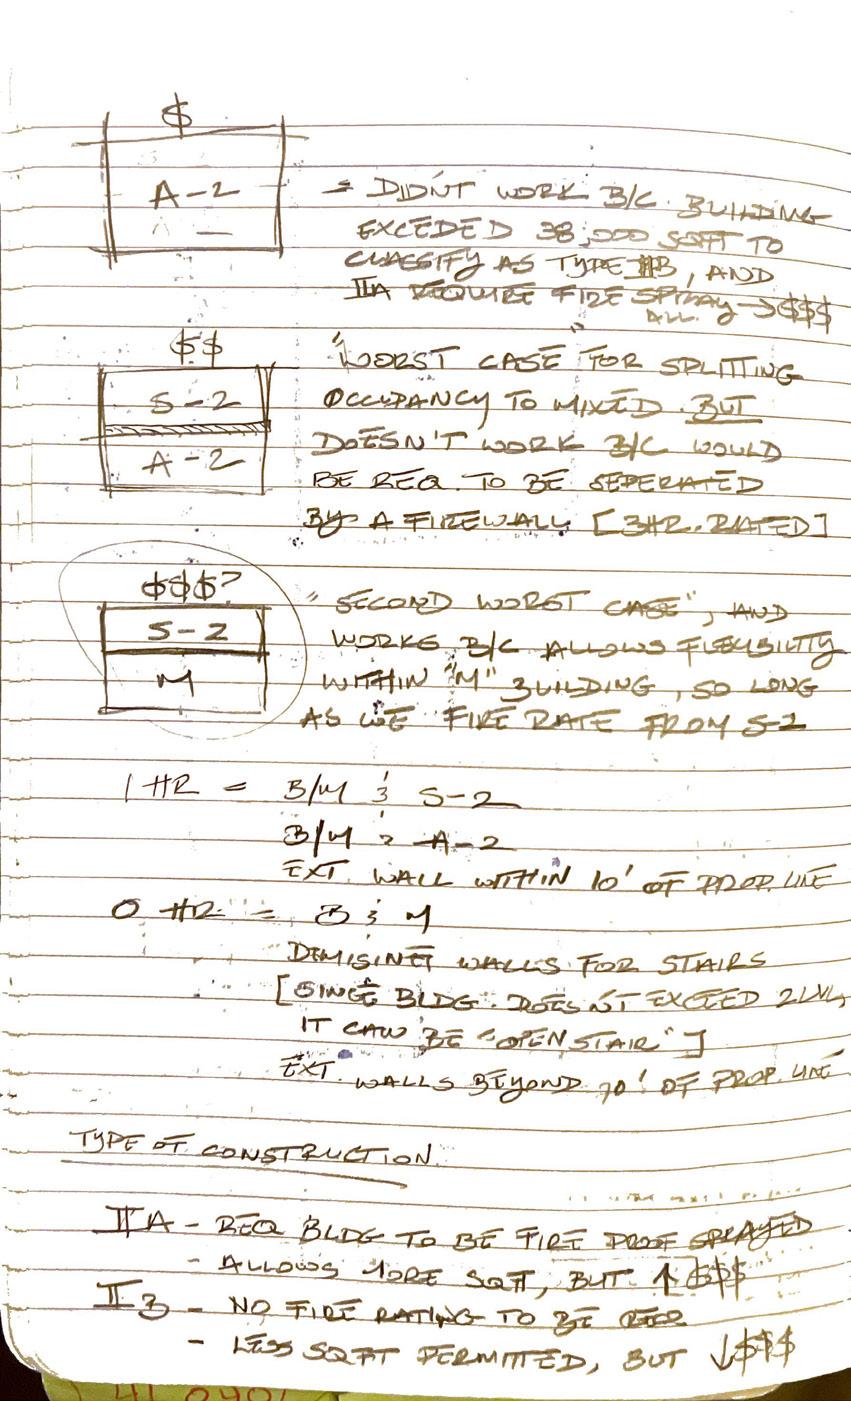 $
A-2
= DIDN'T WORK B/C BUILDING
EXCEEDED 38,000 SQFT TO
CLASSIFY AS TYPE IIB, AND
IIA REQUIRE FIRE SPRAY → $$$
ALL.
$$
S-2
A-2
"WORST CASE FOR SPLITTING
OCCUPANCY TO MIXED. BUT
DOESN'T WORK B/C WOULD
BE REQ. TO BE SEPERATED
BY A FIREWALL [3HR. RATED]
$$$?
S-2
M
"SECOND WORST CASE", AND
WORKS B/C ALLOWS FLEXIBILITY
WITHIN "M" BUILDING, SO LONG
AS WE FIRE RATE FROM S-2
1 HR = B/M & S-2
B/M & A-2
EXT. WALL WITHIN 10' OF PROP. LINE
0 HR = B & M
DEMISING WALLS FOR STAIRS
[SINCE BLDG. DOESN'T EXCEED 2 LVL,
IT CAN BE "OPEN STAIR"]
EXT. WALLS BEYOND 10' OF PROP. LINE
TYPE OF CONSTRUCTION
IIA - REQ BLDG TO BE FIRE PROOF SPRAYED
- ALLOWS MORE SQFT, BUT ↑ $$$
IIB - NO FIRE RATING TO BE REQ
- LESS SQFT PERMITTED, BUT ↓$$$